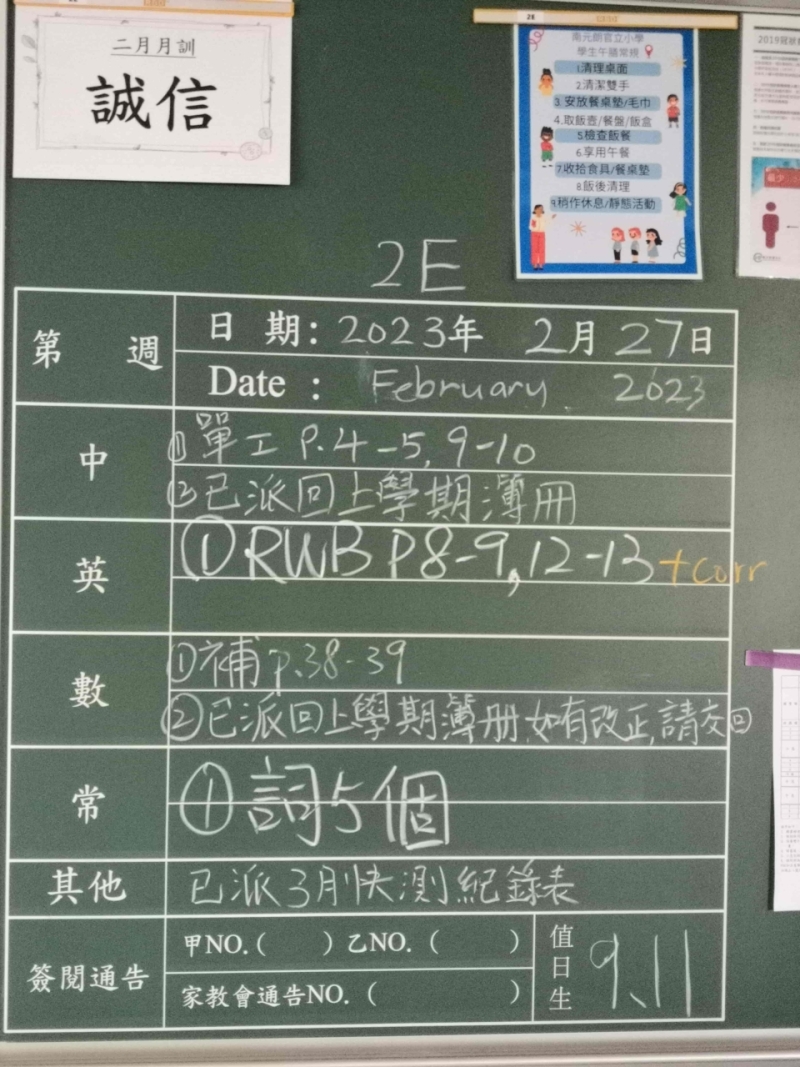 二月月訓
誠信
2E
南元朗官立小學
學生午膳常規
1.清理桌面
2.清潔雙手
3.安放餐桌墊/毛巾
4.取飯壺/餐盤/飯盒
5.檢查飯餐
6.享用午餐
7.收拾食具/餐桌墊
8.飯後清理
9.稍作休息/靜態活動
2E
第 週
日 期: 2023年 2月 27日
Date : February 2023
中
①單工 P.4-5, 9-10
②已派回上學期簿冊
英
①RWB P8-9, 12-13 +corr
數
①補p.38-39
②已派回上學期簿册,如有改正,請交回
常
①詞5個
其他
已派3月快測紀錄表
簽閱通告
甲NO.( ) 乙NO.( )
家教會通告NO.( )
值日生
9、11